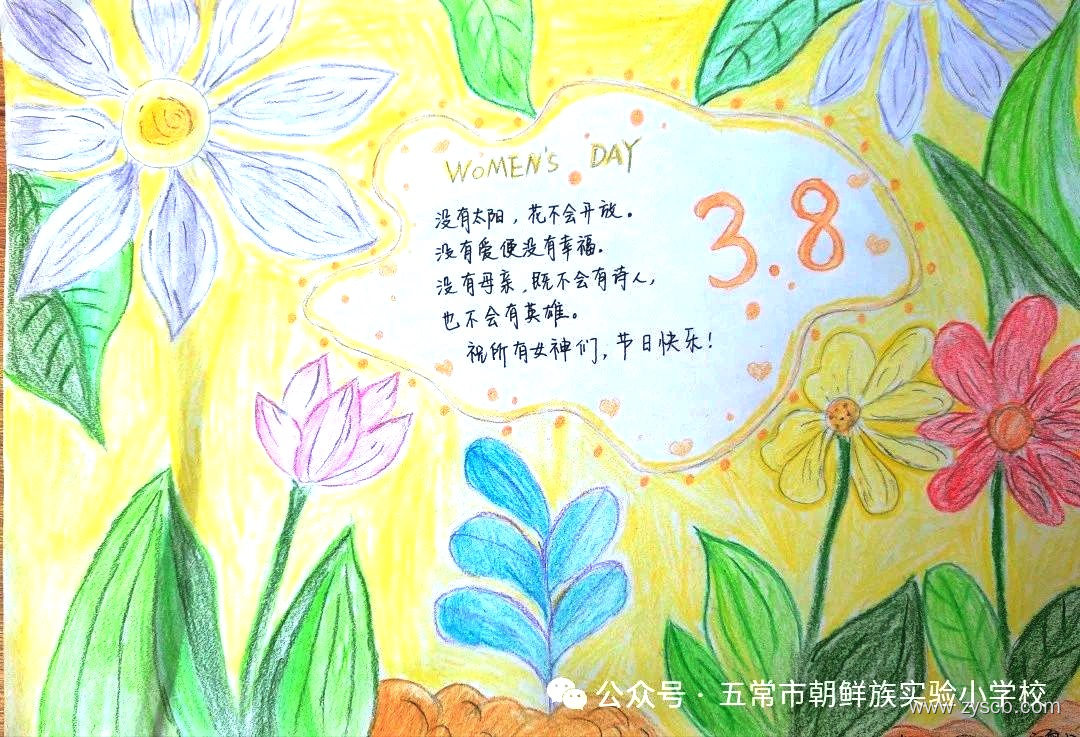 WOMEN'S DAY
3.8
没有太阳，花不会开放。
没有爱便没有幸福。
没有母亲，既不会有诗人，
也不会有英雄。
祝所有女神们，节日快乐！
公众号·五常市朝鲜族实验小学校
www.zyscb.com